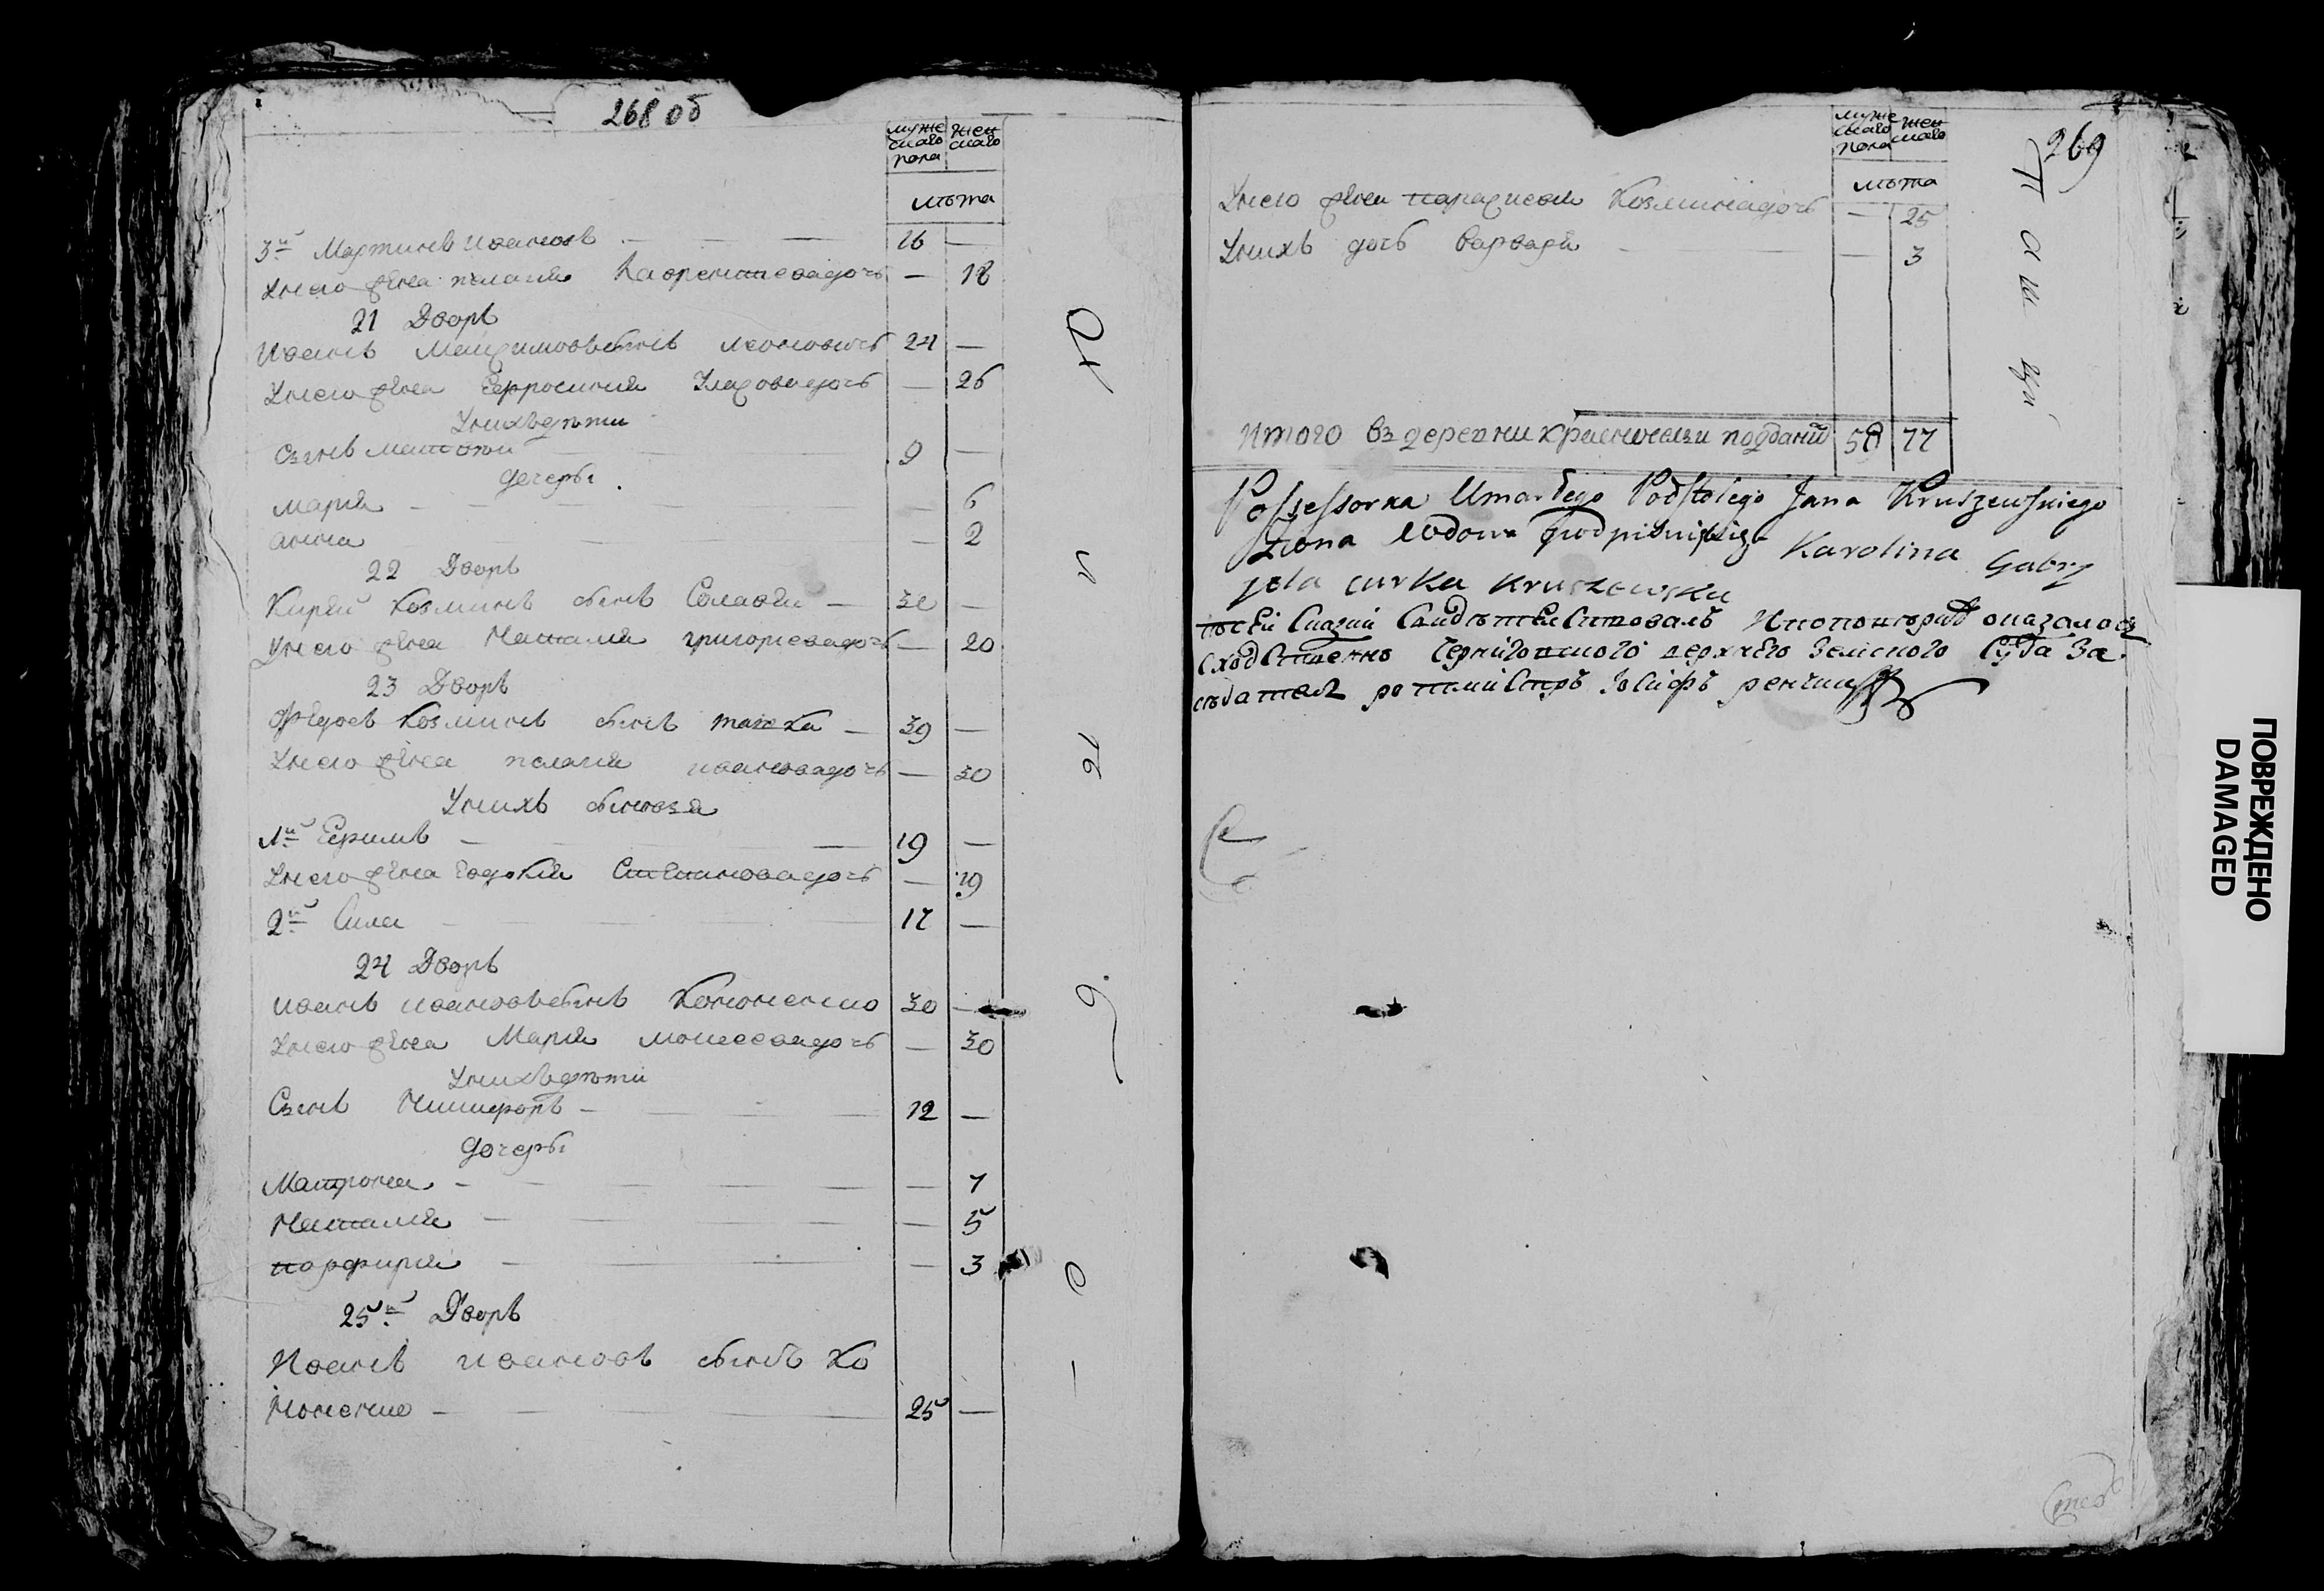 268 об
муже
скаго
пола
жен
скаго
лѣта
3й Мартинъ Ивановъ — 16 —
Унего жена пелагия Лаврентиева дочь — 18
21 Дворъ
Иванъ Максимовъ сынъ 24 —
Унего жена Ефросиния Улаз​ова дочь — 26
Унихъ дѣти
Сынъ Матвей — 9 —
дочери
Мария — 6
Анна — 2
22 Дворъ
Кирей Козминъ сынъ — 30 —
Унего жена Наталия григориева дочь — 20
23 Дворъ
Федоръ Козминъ сынъ — 39 —
Унего жена пелагия иванова дочь — 30
Унихъ сыновя
1й Ефимъ — 19 —
Унего жена Евдокия Степанова дочь — 19
2й Сила — 17 —
24 Дворъ
Иванъ ивановъ сынъ Кононенко 30 —
Унего жена Мария моисеева дочь — 30
Унихъ дѣти
Сынъ Никифоръ — 12 —
дочери
Матрона — 7
Наталия — 5
порфирия — 3
25й Дворъ
Иванъ ивановъ сынъ Ко
Ноненко — 25 —
269
муже
скаго
пола
жен
скаго
лѣта
Унего жена параскевия Козмина дочь — 25
Унихъ дочь варвара — 3
Итого въ деревни подданий 58 77
Possessorka Umarłego Podstolego Jana Kruszewskiego
Żona Wdowa Karolina Gabry
jela curka Kruszewska
посей Сказки Свидѣтелствовалъ Ипо оказалось
сходственно Черниговского верхнего Земского Суда За
седатель ротмистръ Iосифъ
ПОВРЕЖДЕНО
DAMAGED